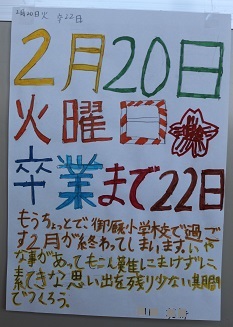 2月20日火 卒22日
2月20日
火曜日
卒業まで22日
もうちょっとで、御厩小学校で過ご
す2月が終わってしまいます。いや
な事があってもこん難にまけずに、
素てきな思い出を残り少ない期間
でつくろう。